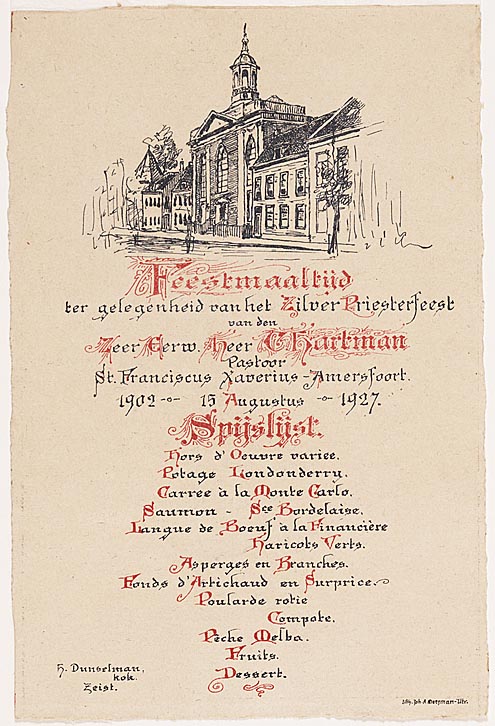 Feestmaaltijd
ter gelegenheid van het Zilver Priesterfeest
van den
Zeer Eerw. Heer Th Hartman
Pastoor
St. Franciscus Xaverius - Amersfoort.
1902 -o- 15 Augustus -o- 1927.
Spijslijst.
Hors d'Oeuvre variee.
Potage Londonderry.
Carree à la Monte Carlo.
Saumon - Sce Bordelaise.
Langue de Boeuf à la Financière
Haricots Verts.
Asperges en Branches.
Fonds d'Artichaud en Surprice.
Poularde rotie
Compote.
Pêche Melba.
Fruits.
Dessert.
H. Dunselman,
kok.
Zeist.
Lith. Joh. A. -Utr.